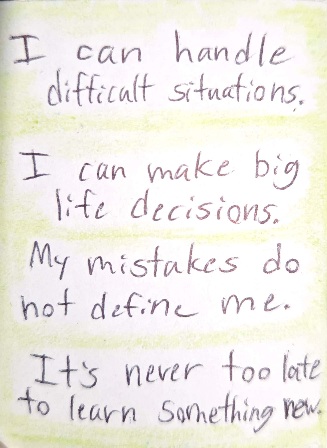 I can handle
difficult situations.
I can make big
life decisions.
My mistakes do
not define me.
It's never too late
to learn something new.